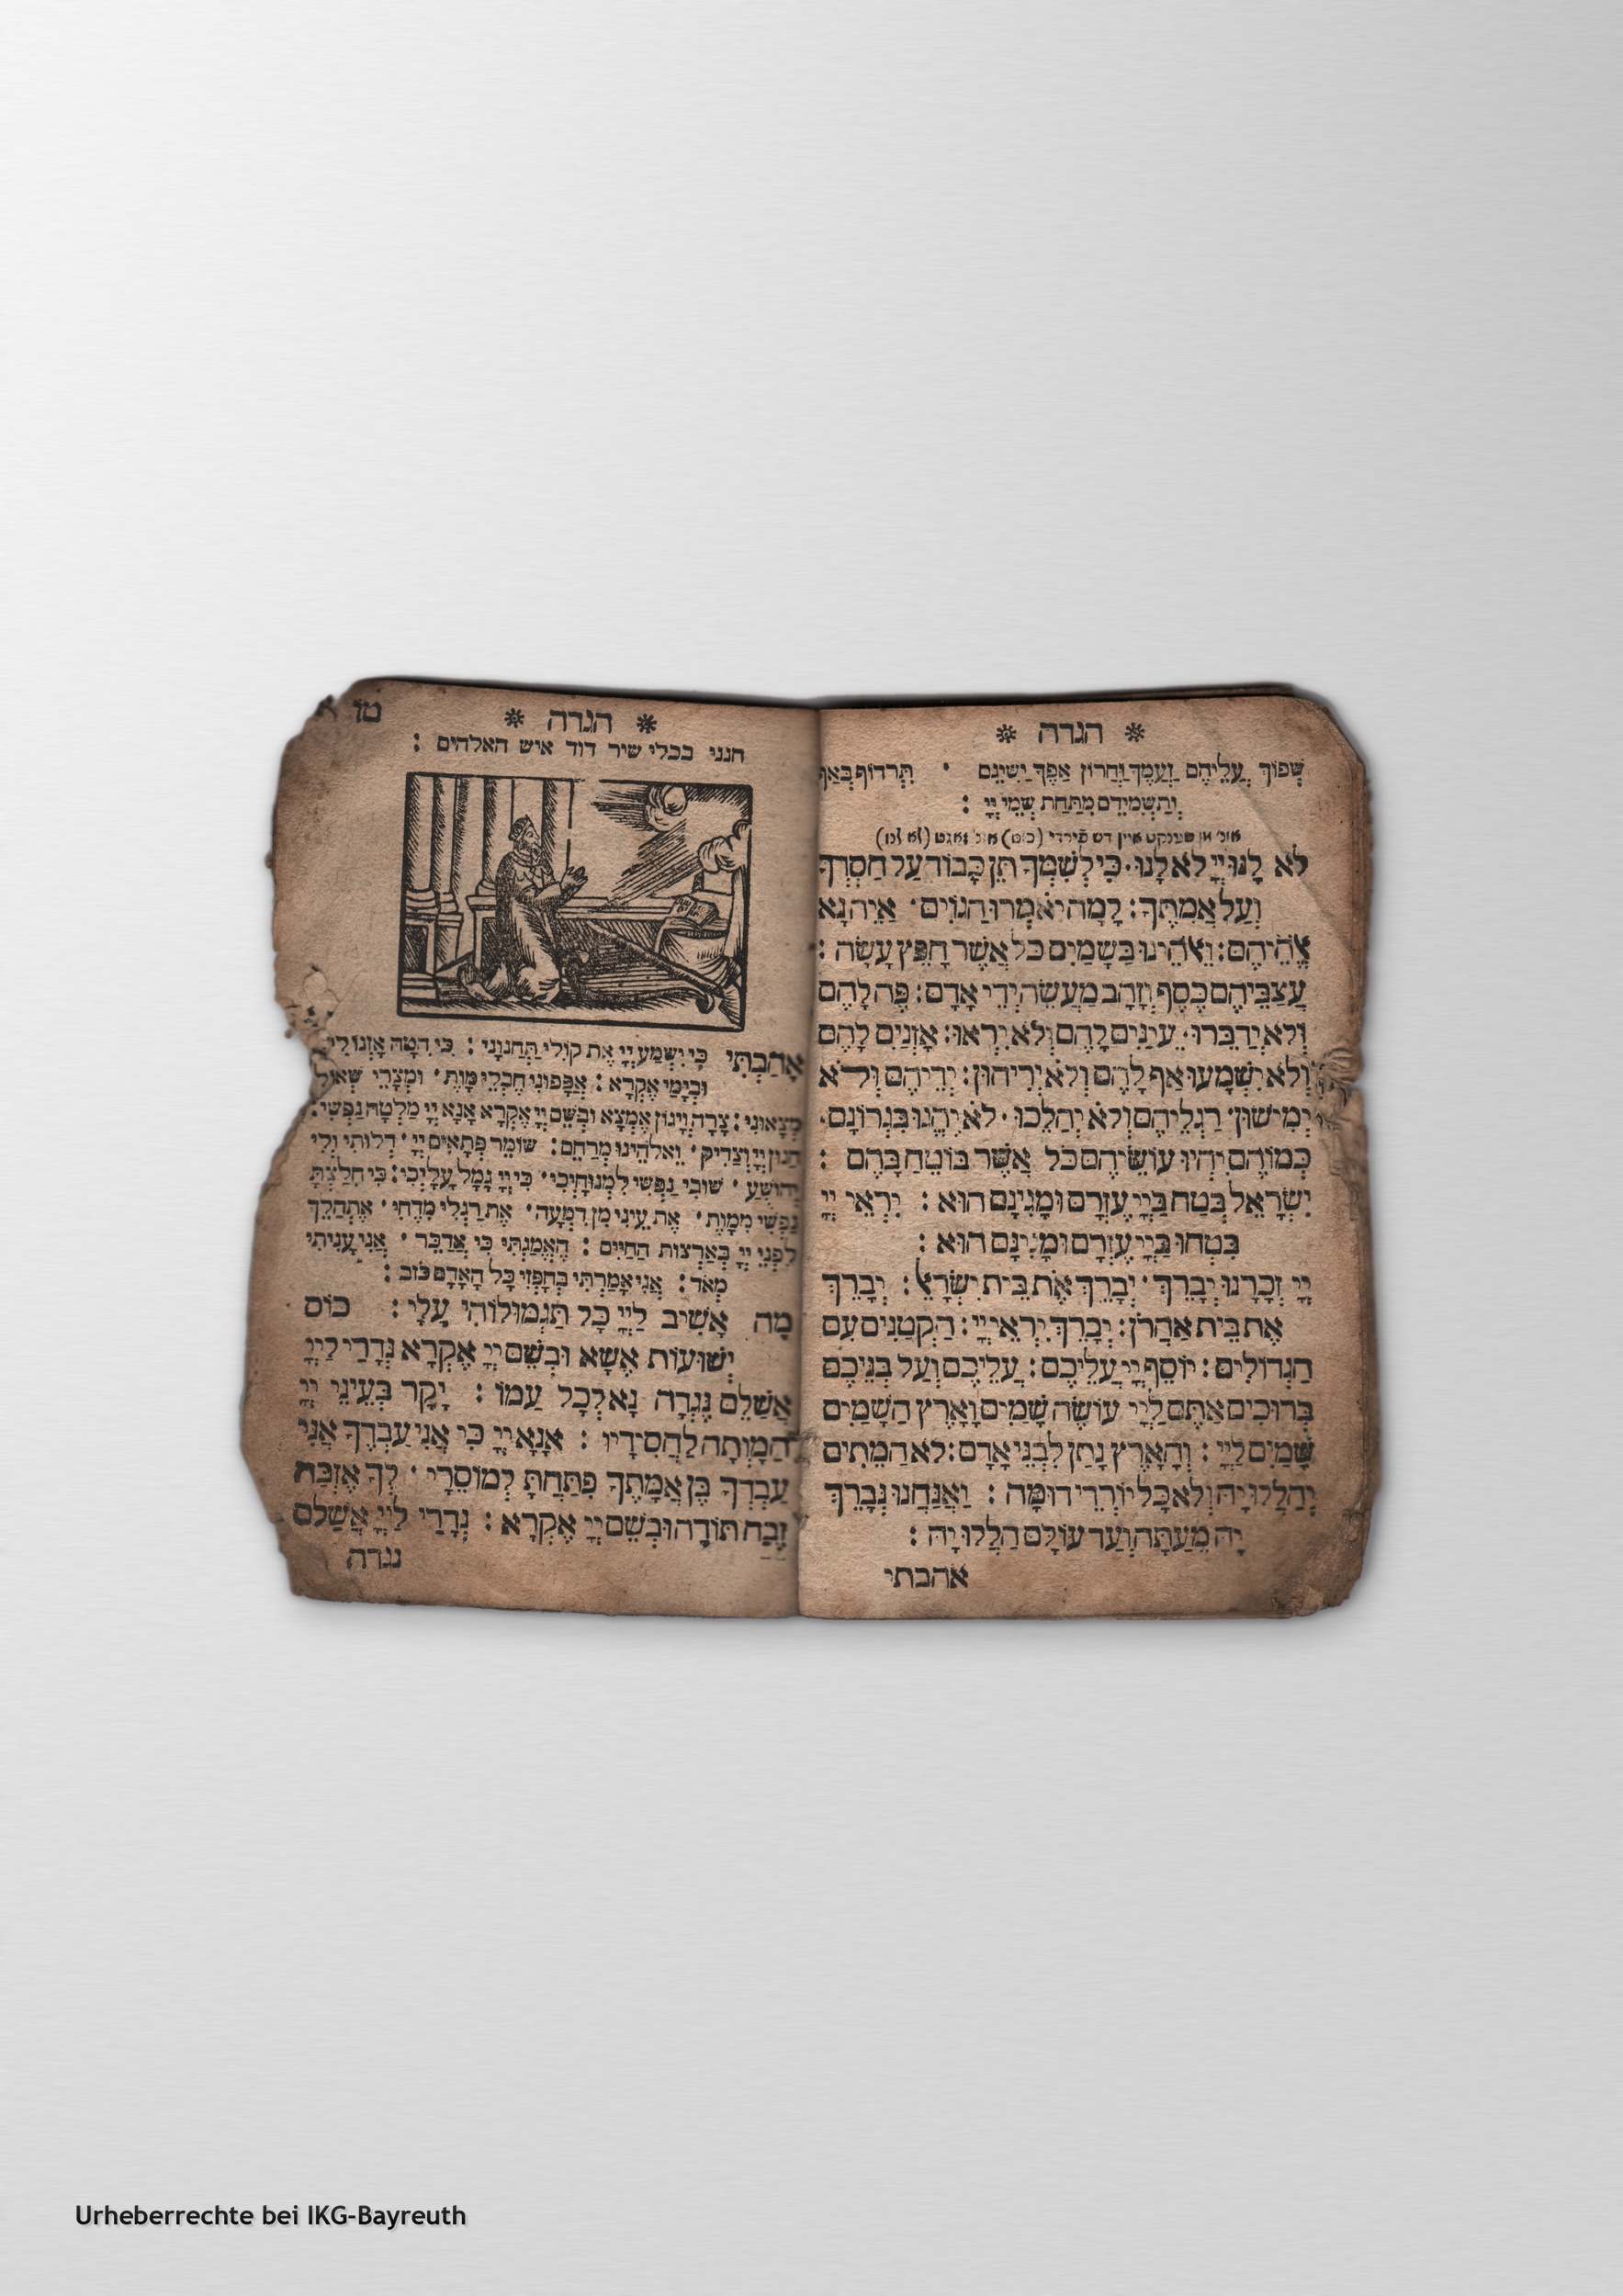 * הגדה *
שְׁפוֹךְ עֲלֵיהֶם זַעְמֶךָ וַחֲרוֹן אַפְּךָ יַשִּׂיגֵם ・ תִּרְדּוֹף בְּאַף
וְתַשְׁמִידֵם מִתַּחַת שְׁמֵי יְיָ :
לֹא לָנוּ יְיָ לֹא לָנוּ・ כִּי לְשִׁמְךָ תֵּן כָּבוֹד עַל חַסְדְּךָ
וְעַל אֲמִתֶּךָ : לָמָה יֹאמְרוּ הַגּוֹיִם・ אַיֵּה נָא
אֱלֹהֵיהֶם : וֵאלֹהֵינוּ בַּשָּׁמַיִם כֹּל אֲשֶׁר חָפֵץ עָשָׂה :
עֲצַבֵּיהֶם כֶּסֶף וְזָהָב מַעֲשֵׂה יְדֵי אָדָם : פֶּה לָהֶם
וְלֹא יְדַבֵּרוּ・ עֵינַיִם לָהֶם וְלֹא יִרְאוּ : אָזְנַיִם לָהֶם
וְלֹא יִשְׁמָעוּ אַף לָהֶם וְלֹא יְרִיחוּן : יְדֵיהֶם וְלֹא
יְמִישׁוּן・ רַגְלֵיהֶם וְלֹא יְהַלֵּכוּ・ לֹא יֶהְגּוּ בִּגְרוֹנָם・
כְּמוֹהֶם יִהְיוּ עוֹשֵׂיהֶם כֹּל אֲשֶׁר בּוֹטֵחַ בָּהֶם :
יִשְׂרָאֵל בְּטַח בַּיְיָ עֶזְרָם וּמָגִינָם הוּא : יִרְאֵי יְיָ
בִּטְחוּ בַּיְיָ עֶזְרָם וּמָגִינָּם הוּא :
יְיָ זְכָרָנוּ יְבָרֵךְ・ יְבָרֵךְ אֶת בֵּית יִשְׂרָאֵל : יְבָרֵךְ
אֶת בֵּית אַהֲרֹן : יְבָרֵךְ יִרְאֵי יְיָ : הַקְּטַנִּים עִם
הַגְּדוֹלִים : יוֹסֵף יְיָ עֲלֵיכֶם : עֲלֵיכֶם וְעַל בְּנֵיכֶם
בְּרוּכִים אַתֶּם לַיְיָ עוֹשֵׂה שָׁמַיִם וָאָרֶץ הַשָּׁמַיִם
שָׁמַיִם לַיְיָ : וְהָאָרֶץ נָתַן לִבְנֵי אָדָם : לֹא הַמֵּתִים
יְהַלְלוּ יָהּ וְלֹא כָּל יוֹרְדֵי דוּמָה : וַאֲנַחְנוּ נְבָרֵךְ
יָהּ מֵעַתָּה וְעַד עוֹלָם הַלְלוּ יָהּ :
אהבתי
טו
* הגדה *
חנני בכלי שיר דוד איש האלהים :
אָהַבְתִּי כִּי יִשְׁמַע יְיָ אֶת קוֹלִי תַּחֲנוּנָי : כִּי הִטָּה אָזְנוֹ לִי
וּבְיָמַי אֶקְרָא : אֲפָפוּנִי חֶבְלֵי מָוֶת・ וּמְצָרֵי שְׁאוֹל
מְצָאוּנִי : צָרָה וְיָגוֹן אֶמְצָא וּבְשֵׁם יְיָ אֶקְרָא אָנָּא יְיָ מַלְּטָה נַפְשִׁי :
חַנּוּן יְיָ וְצַדִּיק・ וֵאלֹהֵינוּ מְרַחֵם : שׁוֹמֵר פְּתָאִים יְיָ・ דַּלּוֹתִי וְלִי
יְהוֹשִׁעַ・ שׁוּבִי נַפְשִׁי לִמְנוּחָיְכִי・ כִּי יְיָ גָּמַל עָלָיְכִי : כִּי חִלַּצְתָּ
נַפְשִׁי מִמָּוֶת・ אֶת עֵינִי מִן דִּמְעָה・ אֶת רַגְלִי מִדֶּחִי・ אֶתְהַלֵּךְ
לִפְנֵי יְיָ בְּאַרְצוֹת הַחַיִּים : הֶאֱמַנְתִּי כִּי אֲדַבֵּר・ אֲנִי עָנִיתִי
מְאֹד : אֲנִי אָמַרְתִּי בְחָפְזִי כָּל הָאָדָם כּוֹזֵב :
מָה אָשִׁיב לַיְיָ כָּל תַּגְמוּלוֹהִי עָלָי : כּוֹס
יְשׁוּעוֹת אֶשָּׂא וּבְשֵׁם יְיָ אֶקְרָא נְדָרַי לַיְיָ
אֲשַׁלֵּם נֶגְדָה נָא לְכָל עַמּוֹ : יָקָר בְּעֵינֵי יְיָ
הַמָּוְתָה לַחֲסִידָיו : אָנָּא יְיָ כִּי אֲנִי עַבְדֶּךָ אֲנִי
עַבְדְּךָ בֶּן אֲמָתֶךָ פִּתַּחְתָּ לְמוֹסֵרָי・ לְךָ אֶזְבַּח
זֶבַח תּוֹדָה וּבְשֵׁם יְיָ אֶקְרָא : נְדָרַי לַיְיָ אֲשַׁלֵּם
נגדה
Urheberrechte bei IKG-Bayreuth